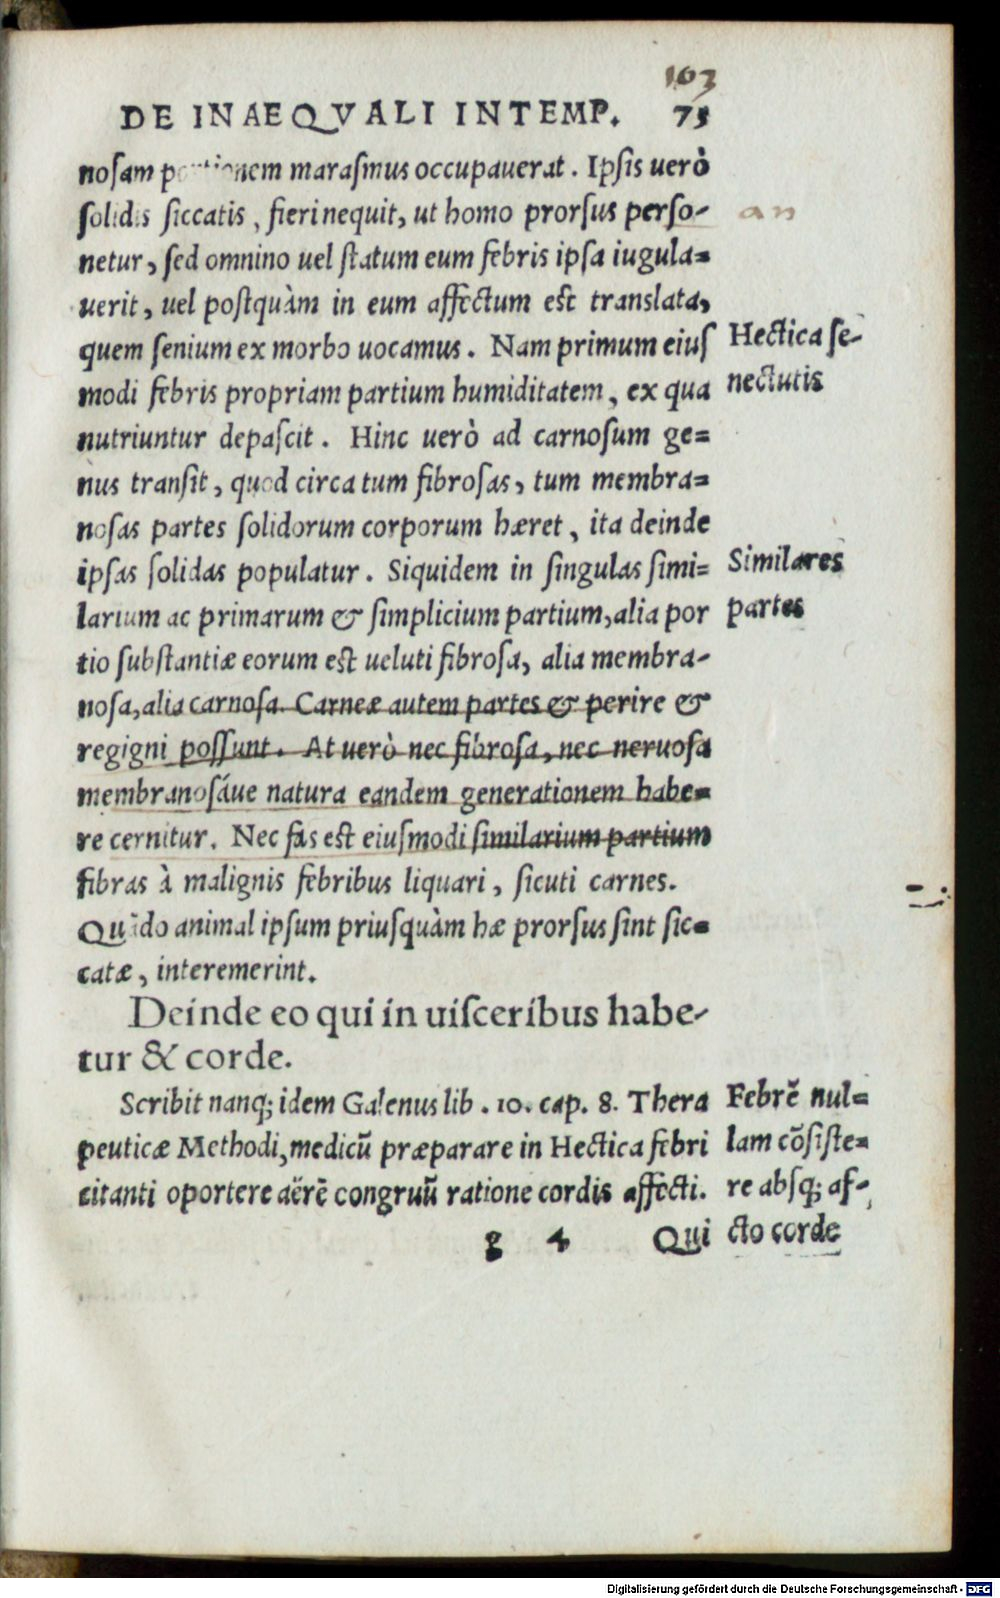 103
DE INAEQVALI INTEMP. 75
nosam portionem marasmus occupauerat. Ipsis uerò
solidis siccatis, fieri nequit, ut homo prorsus perso-
an
netur, sed omnino uel statum eum febris ipsa iugula=
uerit, uel postquàm in eum affectum est translata,
quem senium ex morbo uocamus. Nam primum eius
modi febris propriam partium humiditatem, ex qua
nutriuntur depascit. Hinc uerò ad carnosum ge=
nus transit, quod circa tum fibrosas, tum membra=
nosas partes solidorum corporum hæret, ita deinde
ipsas solidas populatur. Siquidem in singulas simi=
larium ac primarum & simplicium partium, alia por
tio substantiæ eorum est ueluti fibrosa, alia membra-
nosa, alia carnosa. Carneæ autem partes & perire &
regigni possunt. At uerò nec fibrosa, nec neruosa
membranosáue natura eandem generationem habe=
re cernitur. Nec fas est eiusmodi similarium partium
fibras à malignis febribus liquari, sicuti carnes.
Quãdo animal ipsum priusquàm hæ prorsus sint sic=
catæ, interemerint.
Deinde eo qui in uisceribus habe-
tur & corde.
Scribit nanq; idem Galenus lib. 10. cap. 8. Thera
peuticæ Methodi, medicũ præparare in Hectica febri
citanti oportere aërẽ congruũ ratione cordis affecti.
g 4 Qui
Hectica se-
nectutis
Similares
partes
Febrẽ nul=
lam cõsiste=
re absq; af-
cto corde
Digitalisierung gefördert durch die Deutsche Forschungsgemeinschaft - DFG